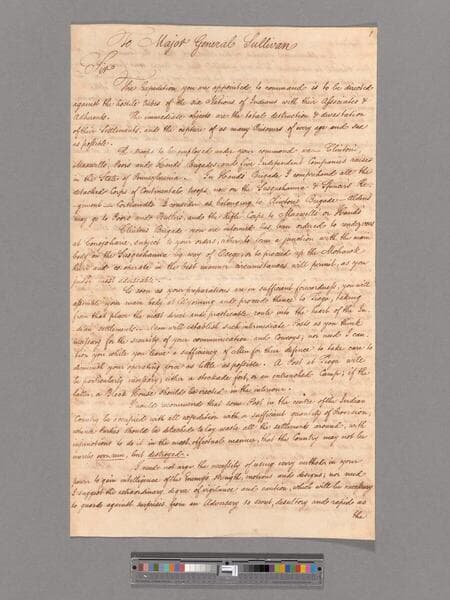 1
To Major General Sullivan
Sir
The Expedition you are appointed to command is to be directed
against the hostile tribes of the six Nations of Indians with their Associates &
Adherents. The immediate objects are the total destruction & devastation
of their Settlements, and the capture of as many Prisoners of every age and sex
as possible.
The troops to be employed under your command are Clinton's
Maxwell's, Poor's and Hand's Brigades, and five Independent Companies raised
in the State of Pennsylvania. In Hand's Brigade I comprehend all the
detached Corps of Continental troops now on the Susquehanna & Spencer's Re-
giment. Cortlandt's I consider as belonging to Clinton's Brigade. Alden's
may go to Poor's and Butler's, and the Rifle Corps to Maxwell's or Hand's
Clinton's Brigade you are informed has been ordered to rendezvous
at Conajohary, subject to your orders, either to form a junction with the main
body on the Susquehanna by way of Otsego, or to proceed up the Mohawk
River and co-operate in the best manner circumstances will permit, as you
judge most advisable.
So soon as your preparations are in sufficient forwardness, you will
assemble your main body at Wyoming and proceed thence to Tioga, taking
from that place the most direct and practicable route into the heart of the In-
dian settlements. You will establish such intermediate Posts as you think
necessary for the security of your communication and Convoys; nor need I cau-
tion you while you leave a sufficiency of Men for their defence to take care to
diminish your operating force as little as possible. A Post at Tioga will
be particularly necessary, either a stockade fort, or an entrenched Camp; if the
latter, a Block House should be erected in the interior.
I would recommend that some Post in the centre of the Indian
Country be occupied with all expedition with a sufficient quantity of Provision,
whence Parties should be detached to lay waste all the settlements around, with
instructions to do it in the most effectual manner; that the Country may not be
merely overrun, but destroyed.
I need not urge the necessity of using every method in your
power to gain intelligence of the Enemy's strength, motions and designs; nor need
I suggest the extraordinary degree of vigilance and caution, which will be necessary
to guard against surprises, from an Adversary so secret, desultory and rapid as
the